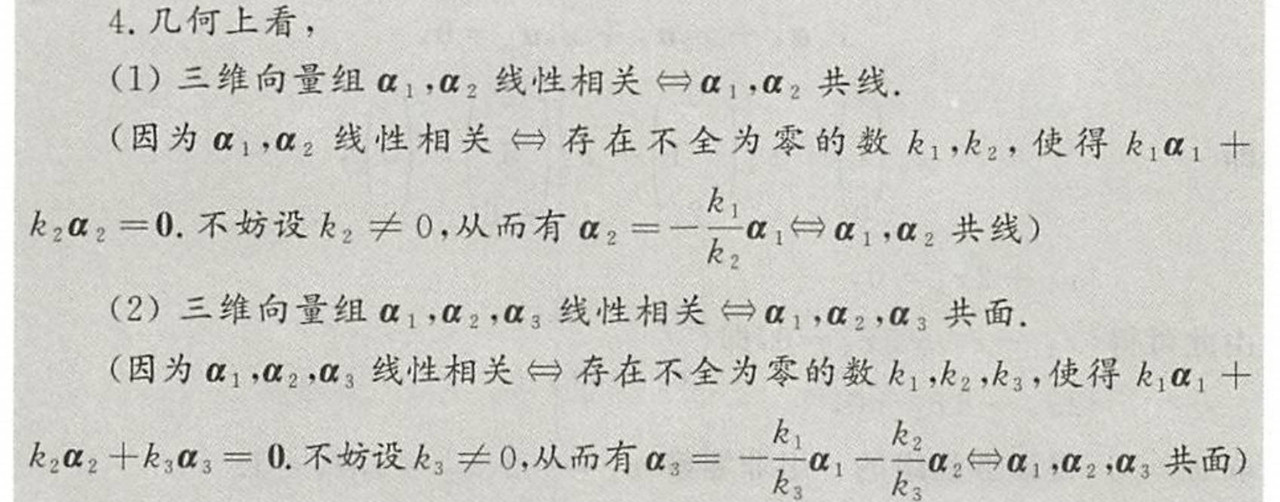 4. 几何上看，
(1) 三维向量组 α₁,α₂ 线性相关 ⇔ α₁,α₂ 共线.
(因为 α₁,α₂ 线性相关 ⇔ 存在不全为零的数 k₁,k₂, 使得 k₁α₁ +
k₂α₂ = 0. 不妨设 k₂ ≠ 0,从而有 α₂ = −k₁/k₂ α₁ ⇔ α₁,α₂ 共线)
(2) 三维向量组 α₁,α₂,α₃ 线性相关 ⇔ α₁,α₂,α₃ 共面.
(因为 α₁,α₂,α₃ 线性相关 ⇔ 存在不全为零的数 k₁,k₂,k₃,使得 k₁α₁ +
k₂α₂ + k₃α₃ = 0. 不妨设 k₃ ≠ 0,从而有 α₃ = −k₁/k₃ α₁ − k₂/k₃ α₂ ⇔ α₁,α₂,α₃ 共面)